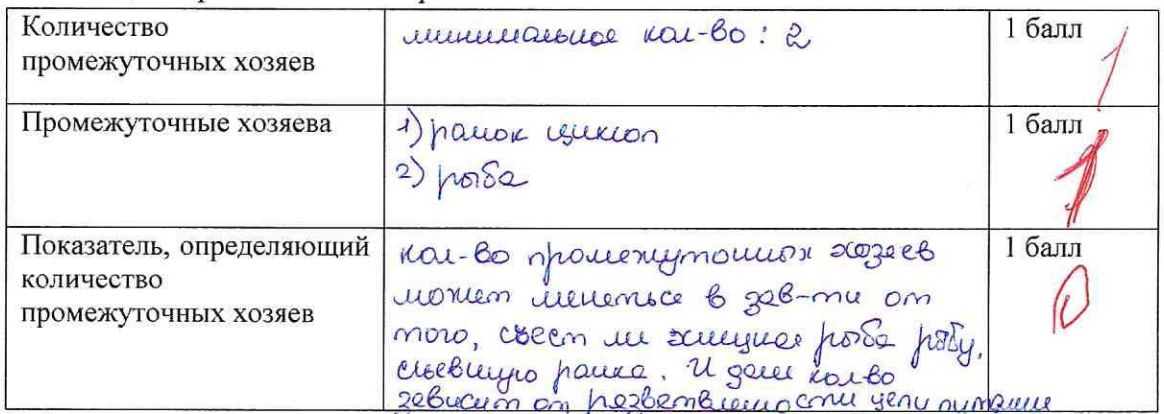 Количество промежуточных хозяев
минимальное кол-во : 2
1 балл
1
Промежуточные хозяева
1) рачок циклоп
2) рыба
1 балл
1
Показатель, определяющий количество промежуточных хозяев
кол-во промежуточных хозяев
может меняться в зав-ти от
того, съест ли хищная рыба рыбу,
съевшую рачка. И даже кол-во
зависит от разветвленности цепи питания
1 балл
0